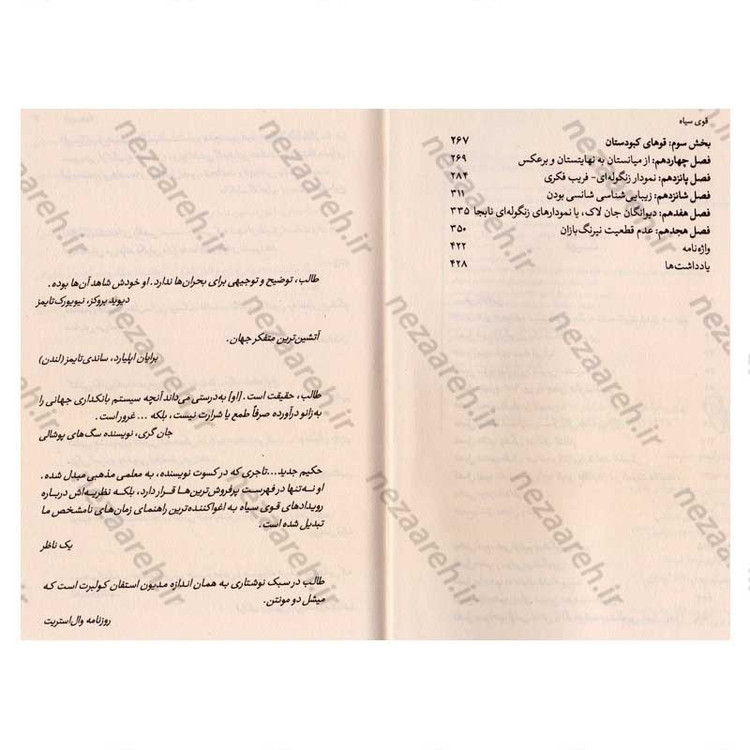 قوی سیاه
بخش سوم: قوهای کبودستان ۲۶۷
فصل چهاردهم: از میانستان به نهایتستان و برعکس ۲۶۹
فصل پانزدهم: نمودار زنگوله‌ای- فریب فکری ۲۸۴
فصل شانزدهم: زیبایی‌شناسی شانسی بودن ۳۱۱
فصل هفدهم: دیوانگان جان لاک، یا نمودارهای زنگوله‌ای نابجا ۳۳۵
فصل هجدهم: عدم قطعیت نیرنگ‌بازان ۳۵۰
واژه‌نامه ۴۲۲
یادداشت‌ها ۴۲۸
طالب، توضیح و توجیهی برای بحران‌ها ندارد. او خودش شاهد آن‌ها بوده.
دیوید بروکز، نیویورک تایمز
آتشین‌ترین متفکر جهان.
برایان اپلیارد، ساندی تایمز (لندن)
طالب، حقیقت است. [او] به‌درستی می‌داند آنچه سیستم بانکداری جهانی را
به زانو درآورده صرفاً طمع یا شرارت نیست، بلکه ... غرور است.
جان گری، نویسنده سگ‌های پوشالی
حکیم جدید...تاجری که در کسوت نویسنده، به معلمی مذهبی مبدل شده.
او نه‌تنها در فهرست پرفروش‌ترین‌ها قرار دارد، بلکه نظریه‌اش درباره
رویدادهای قوی سیاه به اغواکننده‌ترین راهنمای زمان‌های نامشخص ما
تبدیل شده است.
یک ناظر
طالب در سبک نوشتاری به همان اندازه مدیون استفان کولبرت است که
میشل دو مونتن.
روزنامه وال‌استریت
nezaareh.ir
nezaareh.ir
nezaareh.ir
nezaareh.ir
nezaareh.ir
nezaareh.ir
nezaareh.ir
nezaareh.ir
nezaareh.ir
nezaareh.ir
nezaareh.ir
nezaareh.ir